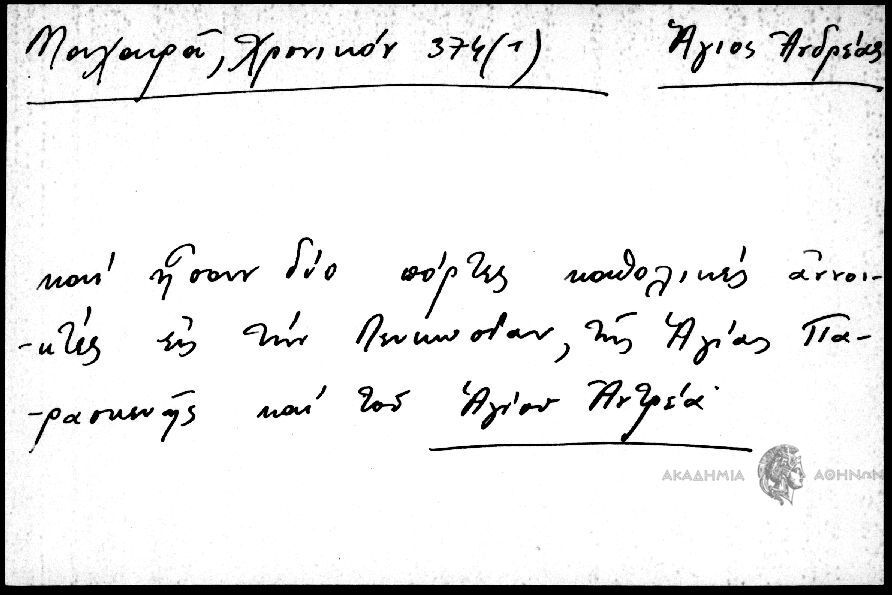 Μαχαιρᾶ, Χρονικόν 374(1) Ἅγιος Ἀνδρέας
καὶ ἦσαν δύο πόρτες καθολικές ἀννοι-
-κτές εἰς τὴν Λευκωσίαν, τῆς Ἁγίας Πα-
-ρασκευῆς καὶ τοῦ Ἁγίου Ἀντρέα·
ΑΚΑΔΗΜΙΑ ΑΘΗΝΩΝ